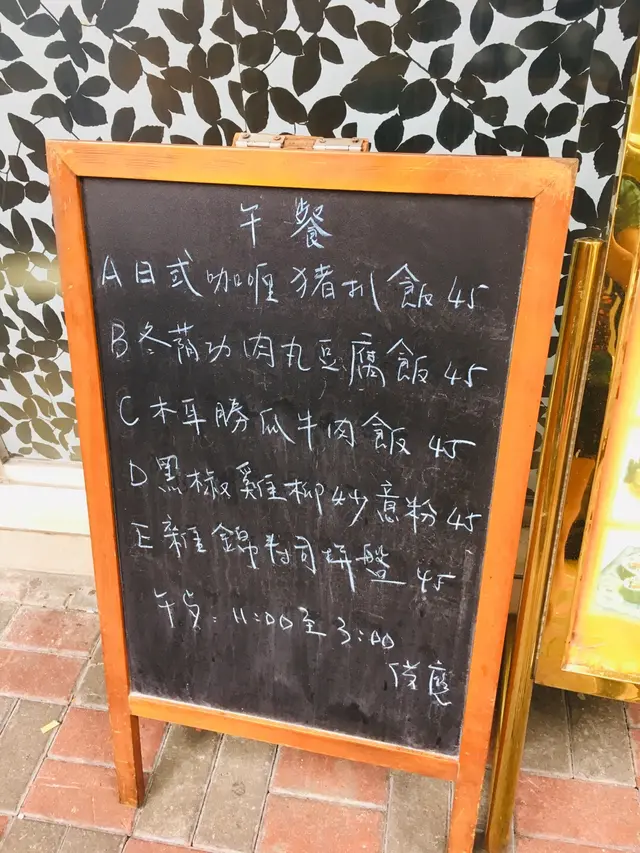 午餐
A日式咖喱猪扒飯 45
B冬蔭功肉丸豆腐飯 45
C木耳勝瓜牛肉飯 45
D黑椒雞柳炒意粉 45
E雜錦寿司拼盤 45
午市: 11:00至3:00
供應